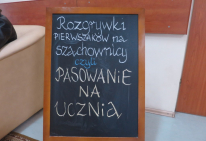 Rozgrywki
PIERWSZAKÓW na
szachownicy
czyli
PASOWANIE
NA
UCZNIA